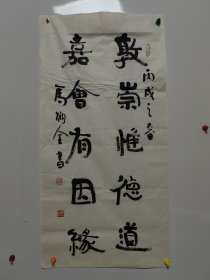 敦崇惟德道
丙戌之春
嘉會有因緣
馬 金書